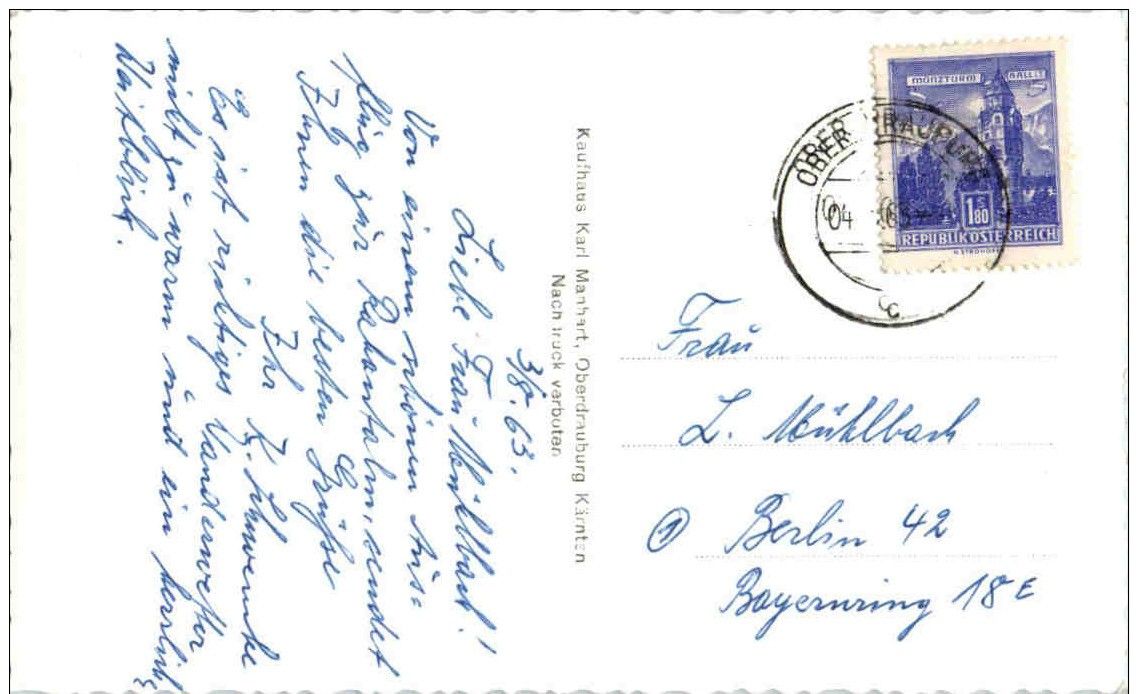 3/8. 63.
Liebe Frau Mühlbach!
Von einem schönen Aus-
flug zur                 sendet
Ihnen die besten Grüße
Ihr
Es ist richtiges Wanderwetter
nicht zu warm und ein herrlich
Weitblick.
Kaufhaus Karl Manhart, Oberdrauburg Kärnten
Nachdruck verboten
MÜNZTURM HALL I. T.
S
1.80
REPUBLIK ÖSTERREICH
OBERDRAUBURG
04
c
Frau
L. Mühlbach
1 Berlin 42
Bayernring 18 E